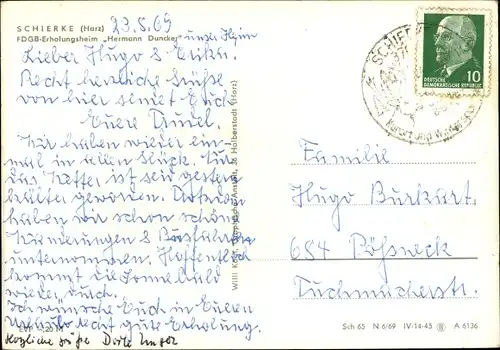 SCHIERKE (Harz) 23.8.69
FDGB-Erholungsheim „Hermann Duncker" unser Heim
Lieber Hugo & Erika.
Recht herzliche Grüße
von hier sendet Euch
Eure Trudel.
Wir haben wieder ein-
mal in allem Glück. Nur
das Wetter ist seit gestern
kälter geworden. Trotzdem
haben wir schon schöne
Wanderungen & Busfahrten
unternommen. Hoffentlich
kommt die Sonne bald
wieder durch.
Ich wünsche Euch in Eurem
Urlaub recht gute Erholung.
EVP 0,20 M
Herzliche Grüße
Willi Knabe, Graphische Anstalt, 36 Halberstadt (Harz)
SCHIERKE
DEUTSCHE
DEMOKRATISCHE REPUBLIK
10
Familie
Hugo Burkart.
684 Pößneck
Tuchmacherstr.
Sch 65 N 6/69 IV-14-45 A 6136